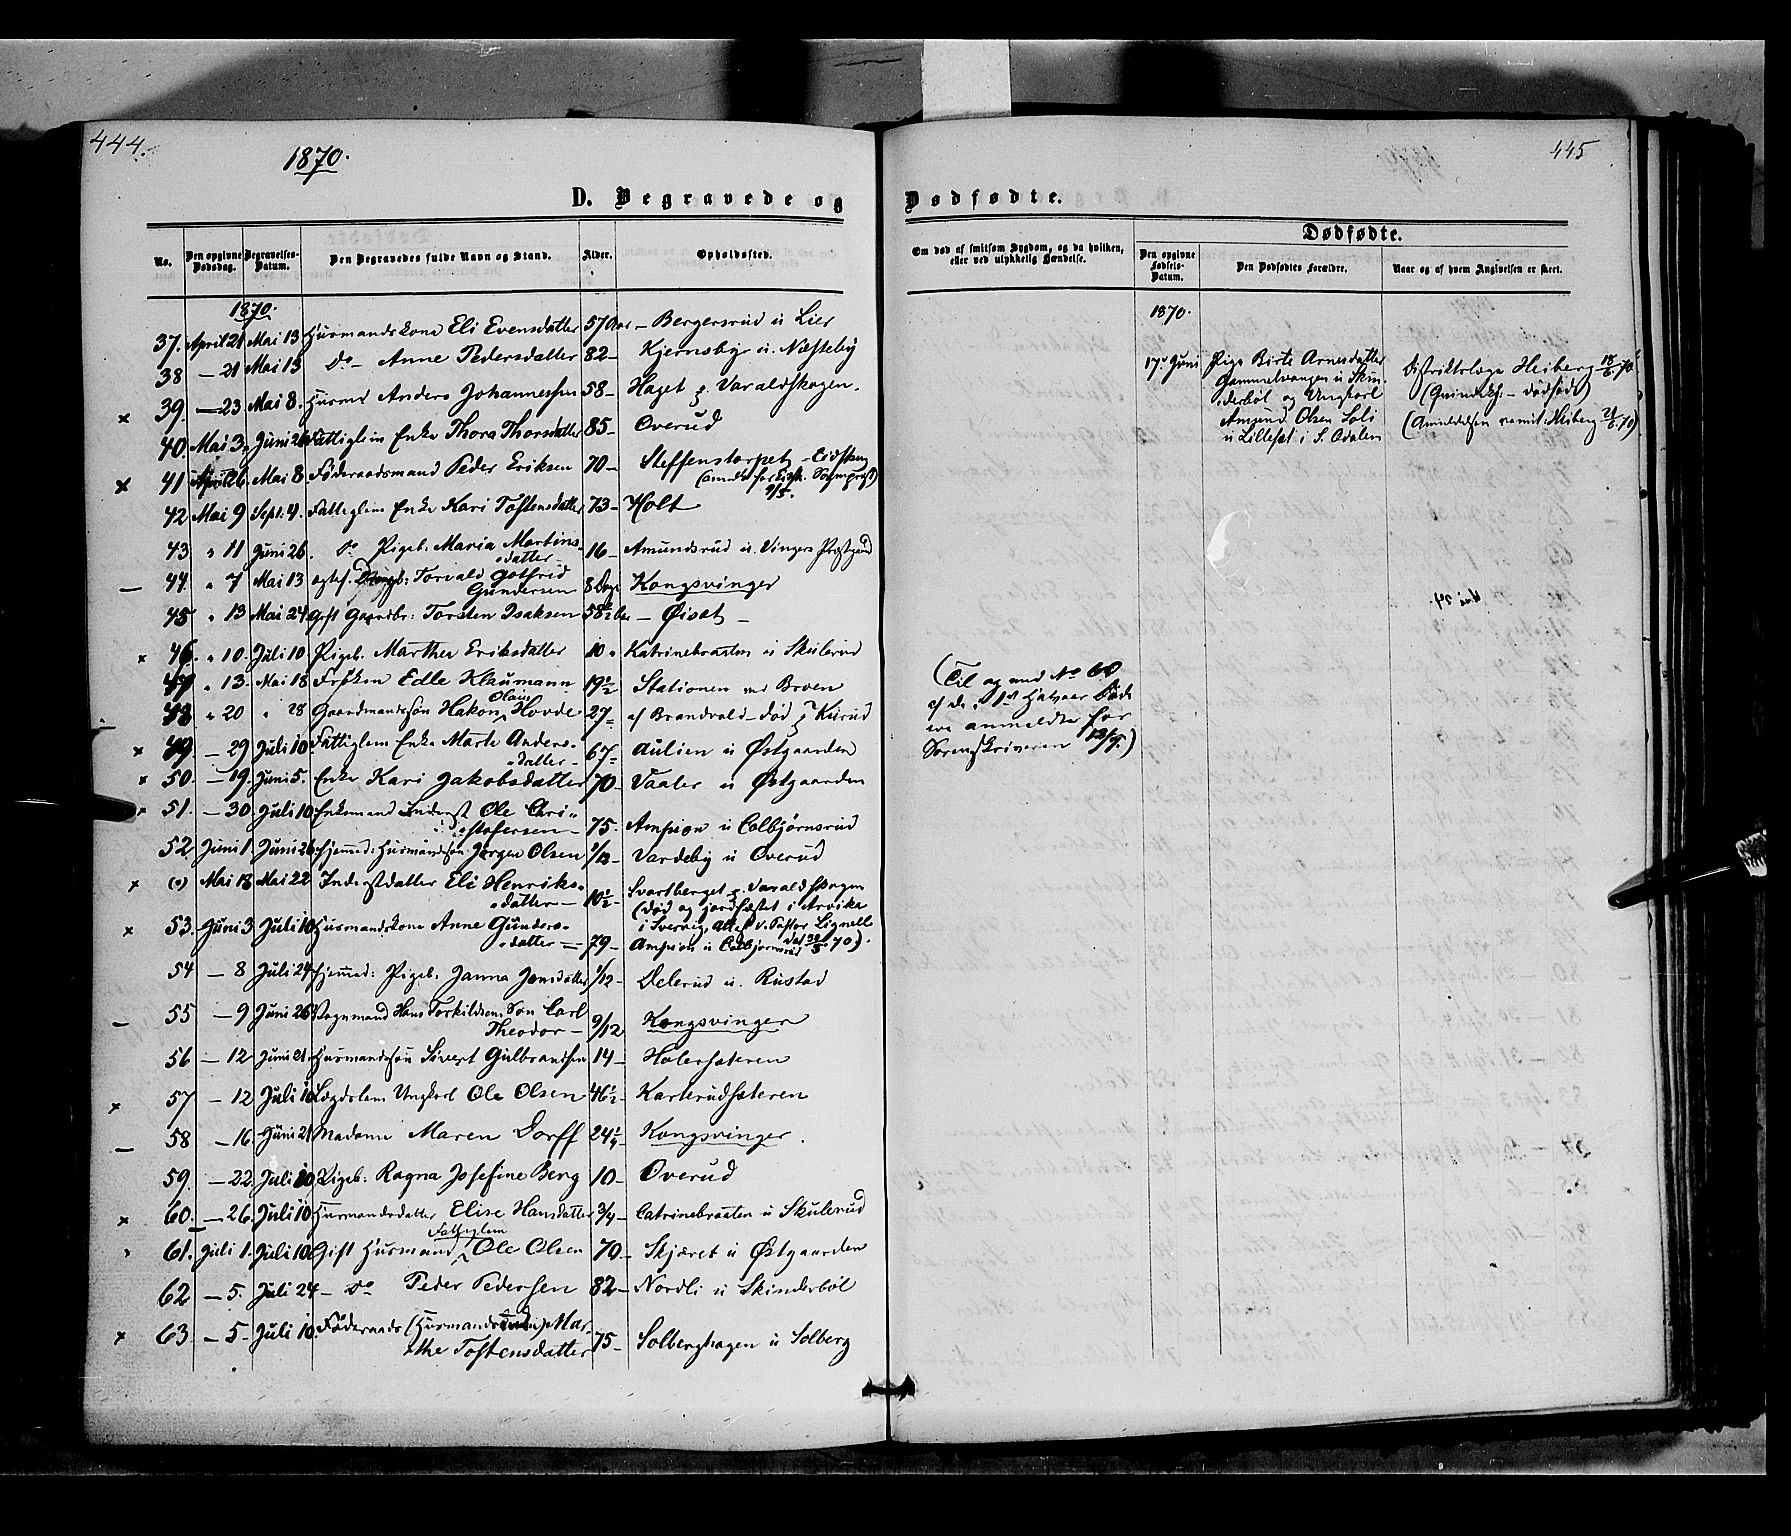 444.
1870.
D. Begravede og
No. Den opgivne Dødsdag. Begravelses-Datum. Den Begravedes fulde Navn og Stand. Alder. Opholdssted.
1870.
37. April 21 Mai 13 Husmandskone Eli Evensdatter 57 Aar – Bergersrud u Lier
38 – 21 Mai 13 Do – Anne Pedersdatter 82 – Kjernsby u. Næsteby
39. – 23 Mai 8. Husmd Anders Johannessen 58 – Haget p. Varaldskogen.
40. Mai 3. Juni 26 Fattiglem Enke Thora Thorsdatter 85 – Overud
41 April 26. Mai 8 Føderaadsmand Peder Eriksen 70 – Steffenstorpet – Eidskog
(anmdt for Eidsk. Sogneprest)
9/5.
42 Mai 9 Sept. 4. Fattiglem Enke Kari Tostensdatter 73 – Holt
43 " 11 Juni 26. do Pigeb. Maria Martins-
datter 16 – Amundsrud u. Vingers Præstgaard
44. " 7 Mai 13 ægtef. Drengb: Torvald Gotfrid
Gundersen 8 Dage Kongsvinger
45 " 13 Mai 24. Gift Gaardbr: Torsten Isaksen 58½ Aar – Øiset –
46 " 10. Juli 10 Pigeb. Marthea Eriksdatter 10 " Katrinebraaten u Skulerud
47 " 13. Mai 18 Frøken Edle Klaumann 19½ Stationen ved Broen
48 " 20 " 28 Gaardmandssøn Hakon Olaus Hovde 27 – af Brandvold – død p Kurud
49 – 29 Juli 10 Fattiglem Enke Marte Anders-
datter – 67 – Aulien u Østgaarden
50. – 19. Juni 5. Enke Kari Jakobsdatter 70 – Vaaler u Østgaarden
51. – 30 Juli 10. Enkemand Inderst Ole Chri-
stofersen – 75. Ampion u Colbjørnsrud
52. Juni 1. Juni 26. Hjemmed: Husmandssøn Jørgen Olsen Vardeby u Overud
(0) Mai 18 Mai 22 Inderstdatter Eli Henriks-
datter – 10½ Svartberget p. Varaldskogen
(død og jordfæstet i Arvika
i Sverrig, Attest v. Pastor Lignell
53. Juni 3 Juli 10 Husmandskone Anne Gunders-
datter – 79 – Ampion u Colbjørnsrud
54 – 8 Juli 24 Hjemmed: Pigeb. Janna Jensdatter 1/12 – Delerud u. Rustad
55 – 9 Juni 26 Vognmand Hans Torkildsens Søn Carl
Theodor – 9/12 Kongsvinger
56 – 12 Juni 21. Husmandssøn Sivert Gulbrandsen 14 – Holersæteren
57 – 12 Juli 10 Lægdslem Ungkarl Ole Olsen 46½ Karterudsæteren
58 – 16 Juni 21 Madame Maren Dorff 24½ Kongsvinger.
59. – 22. Juli 10 Pigeb: Ragna Josefine Berg 10 – Overud
60. – 26. Juli 10 Husmandsdatter Elise Hansdatter 3/4 – Catrinebraaten u Skulerud
61. Juli 1. Juli 10. Gift Husmand Fattiglem Ole Olsen 70 – Skjæret u Østgaarden
62 – 5. Juli 24 – Do Peder Pedersen 82 – Nordli u Skinderbøl
63 – 5. Juli 10. Føderaads (Husmands) Mar-
the Tostensdatter 75 – Solberghagen u Solberg
445
Dødfødte.
Om død af smitsom Sygdom, og da hvilken, eller ved ulykkelig Hændelse.
Dødfødte.
Den opgivne Fødsels-Datum. Den Dødfødtes Forældre. Naar og af hvem Angivelsen er skeet.
1870.
17. Juni Pige Birte Arnesdatter
Gammelvangen u Skin-
derbøl og Ungkarl
Amund Olsen Soli
u Lillesæt i S. Odalen
Distriktslæge Heiberg 18/6 70
(Qvindekj. – dødfødt)
(Anmeldelsen remit: Heiberg 21/6 70)
(Til og med No 60
anmeldte for
Sorenskriveren 13/7.)